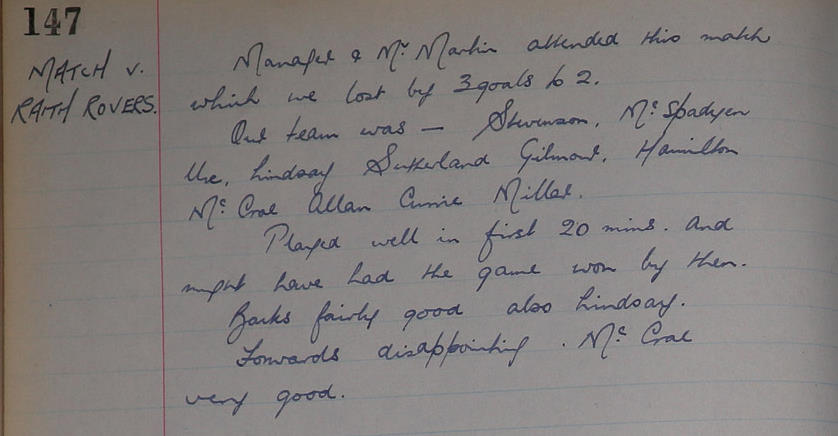 147
MATCH V.
RAITH ROVERS.
Manager & Mr Martin attended this match
which we lost by 3 goals to 2.
Our team was — Stevenson, McSpadyen
Ure, Lindsay Sutherland Gilmour, Hamilton
McCrae Allan Currie Millar.
Played well in first 20 mins. And
might have had the game won by then.
Backs fairly good also Lindsay.
Forwards disappointing. McCrae
very good.